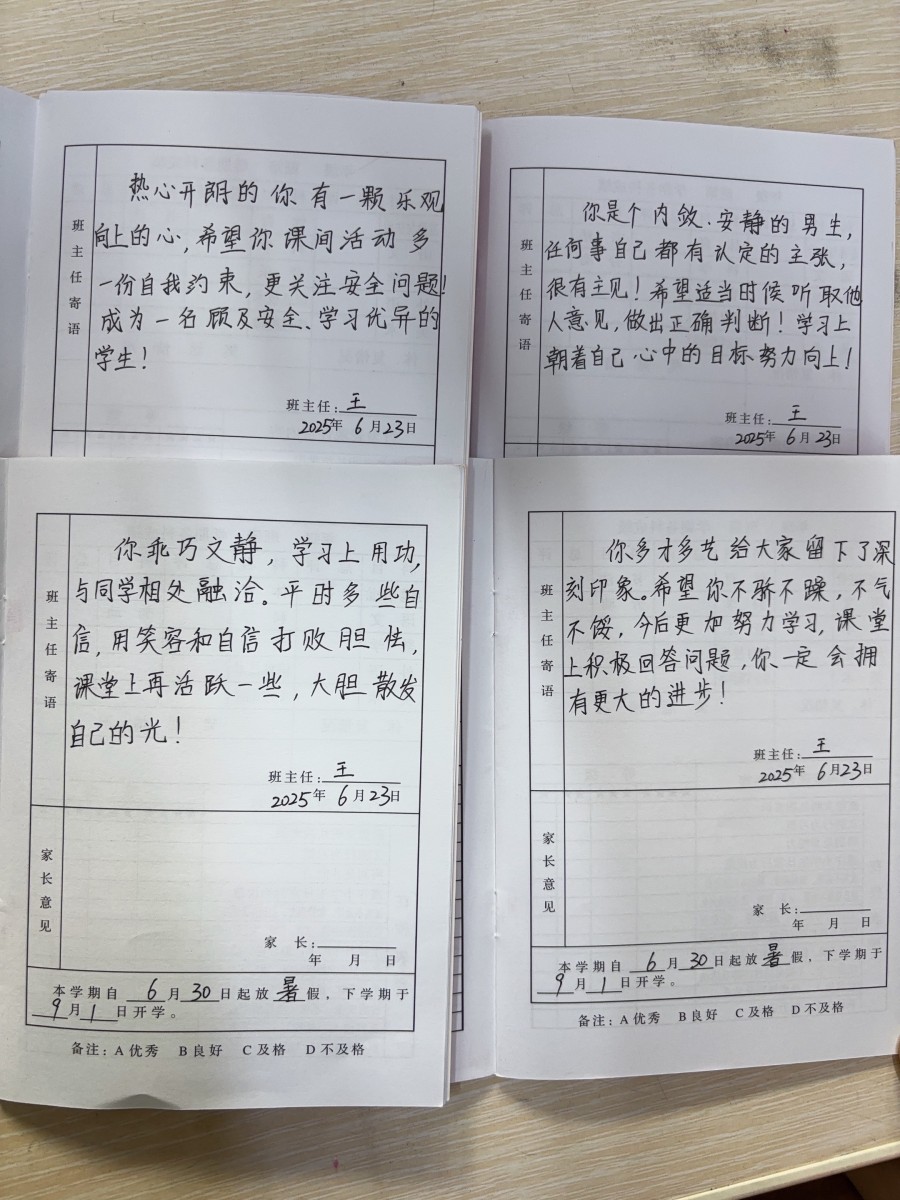 班主任寄语
热心开朗的你有一颗乐观
向上的心,希望你课间活动多
一份自我约束,更关注安全问题!
成为一名顾及安全、学习优异的
学生!
班主任:王
2025年6月23日
班主任寄语
你是个内敛.安静的男生,
任何事自己都有认定的主张,
很有主见!希望适当时候听取他
人意见,做出正确判断!学习上
朝着自己心中的目标努力向上!
班主任:王
2025年6月23日
班主任寄语
你乖巧文静,学习上用功,
与同学相处融洽。平时多些自
信,用笑容和自信打败胆怯,
课堂上再活跃一些,大胆散发
自己的光!
班主任:王
2025年6月23日
家长意见
家 长:
年 月 日
本学期自6月30日起放暑假,下学期于
9月1日开学。
备注:A优秀 B良好 C及格 D不及格
班主任寄语
你多才多艺给大家留下了深
刻印象。希望你不骄不躁,不气
不馁,今后更加努力学习,课堂
上积极回答问题,你一定会拥
有更大的进步!
班主任:王
2025年6月23日
家长意见
家 长:
年 月 日
本学期自6月30日起放暑假,下学期于
9月1日开学。
备注:A优秀 B良好 C及格 D不及格